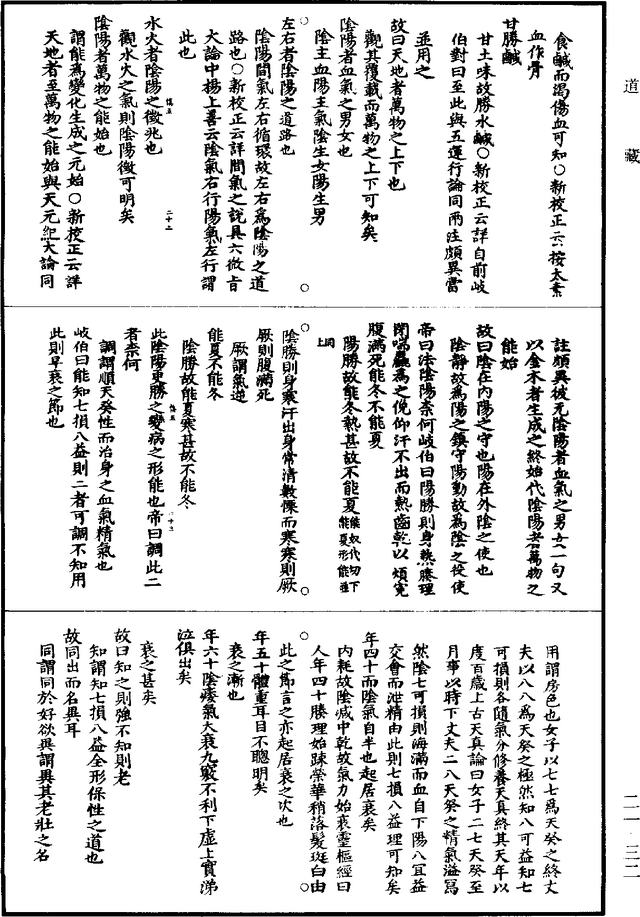 道藏
食鹹而渴傷血可知○新校正云按太素
血作骨
甘勝鹹
甘土味故勝水鹹○新校正云詳自前岐
伯對曰至此與五運行論同兩注頗異當
並用之
故曰天地者萬物之上下也
觀其覆載而萬物之上下可知矣
陰陽者血氣之男女也
陰主血陽主氣陰生女陽生男
左右者陰陽之道路也
陰陽間氣左右循環故左右為陰陽之道
路也○新校正云詳間氣之說具六微旨
大論中楊上善云陰氣右行陽氣左行謂
此也
水火者陰陽之徵兆也
觀水火之氣則陰陽徵可明矣
陰陽者萬物之能始也
謂能為變化生成之元始○新校正云詳
天地者至萬物之能始與天元紀大論同
註頗異彼无陰陽者血氣之男女一句又
以金木者生成之終始代陰陽者萬物之
能始
故曰陰在內陽之守也陽在外陰之使也
陰靜故為陽之鎮守陽動故為陰之役使
帝曰法陰陽奈何岐伯曰陽勝則身熱腠理
閉喘麤為之俛仰汗不出而熱齒乾以煩冤
腹滿死能冬不能夏
陽勝故能冬熱甚故不能夏能奴代切下能夏形能並
同上
陰勝則身寒汗出身常清數慄而寒寒則厥
厥則腹滿死
厥謂氣逆
能夏不能冬
陰勝故能夏寒甚故不能冬
此陰陽更勝之變病之形能也帝曰調此二
者奈何
調謂順天癸性而治身之血氣精氣也
岐伯曰能知七損八益則二者可調不知用
此則早衰之節也
用謂房色也女子以七七為天癸之終丈
夫以八八為天癸之極然知八可益知七
可損則各隨氣分修養天真終其天年以
度百歲上古天真論曰女子二七天癸至
月事以時下丈夫二八天癸之精氣溢寫
然陰七可損則海滿而血自下陽八宜益
交會而泄精由此則七損八益理可知矣
年四十而陰氣自半也起居衰矣
內耗故陰減中乾故氣力始衰靈樞經曰
人年四十腠理始踈榮華稍落髮斑白由
此之節言之亦起居衰之次也
年五十體重耳目不聰明矣
衰之漸也
年六十陰痿氣大衰九竅不利下虛上實涕
泣俱出矣
衰之甚矣
故曰知之則強不知則老
知謂知七損八益全形保性之道也
故同出而名異耳
同謂同於好欲異謂異其老壯之名
二一·三二